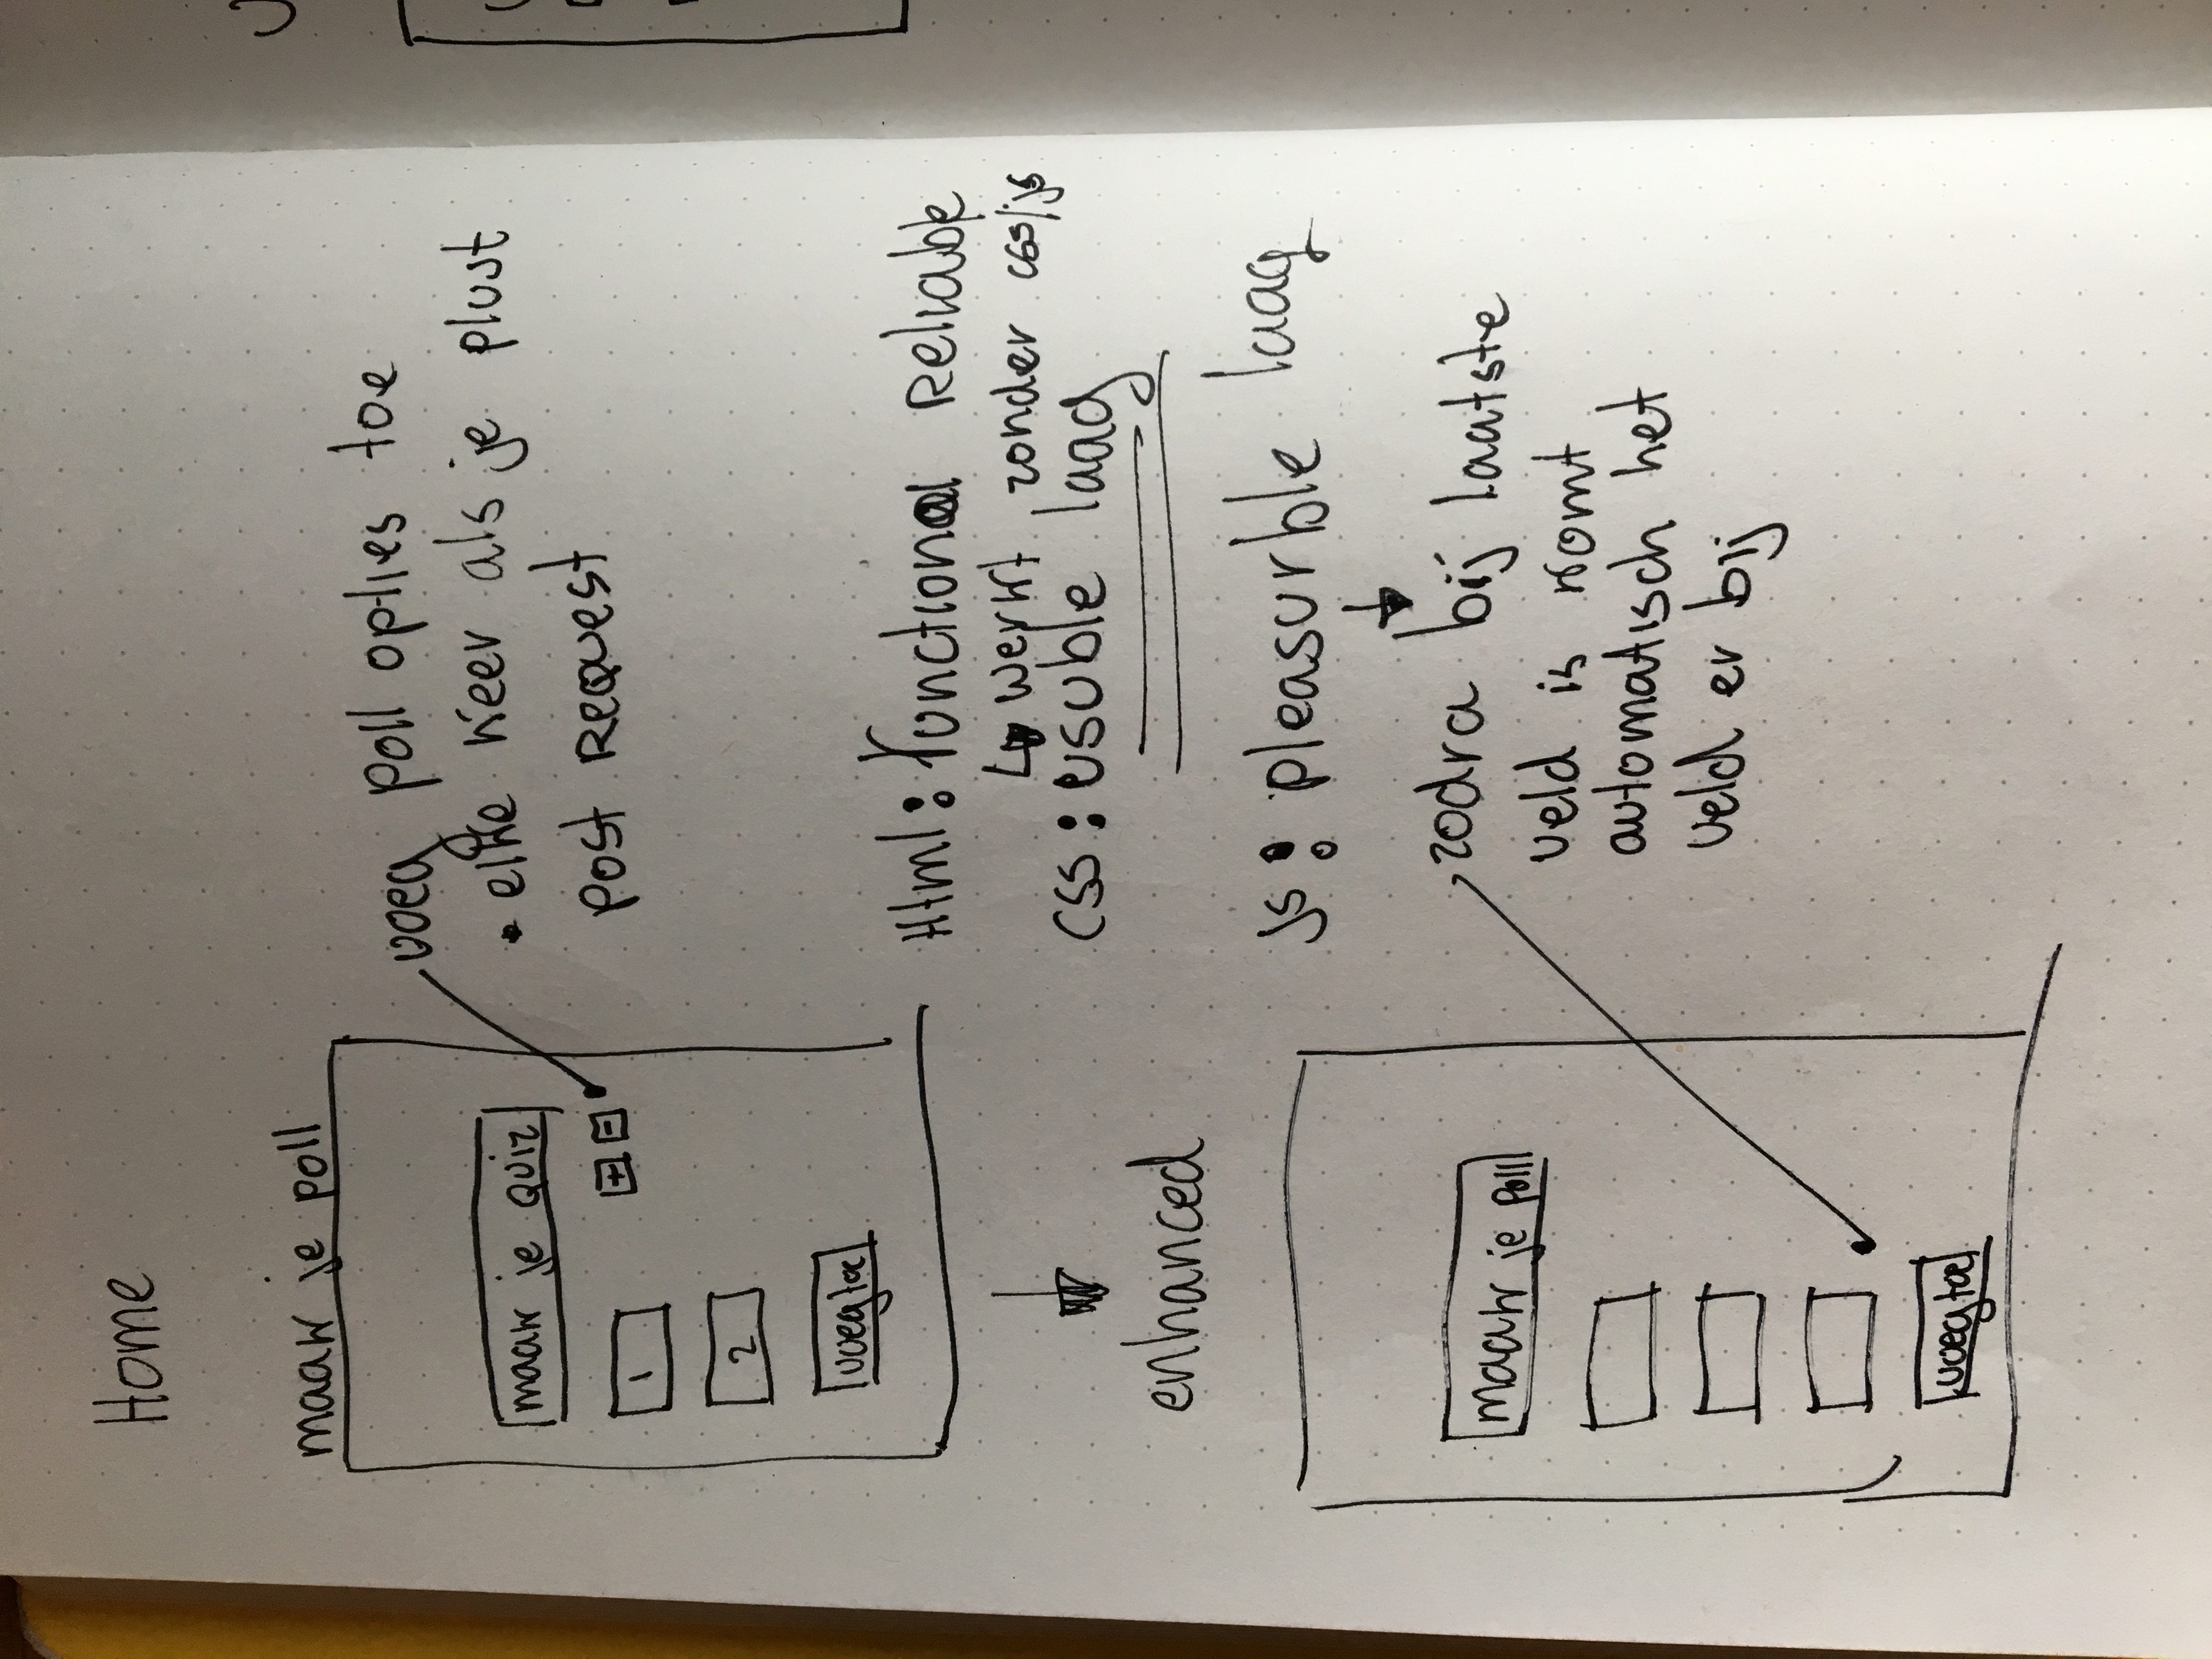 Home
maak je poll
maak je quiz
+ -
1
2
voeg toe
voeg poll opties toe
• elke keer als je plust
post request
Html: functional Reliable
↳ werkt zonder css/js
css: usuble laag
enhanced
js: pleasurble laag
zodra bij laatste
veld is komt
automatisch het
veld er bij
maak je poll
voeg toe